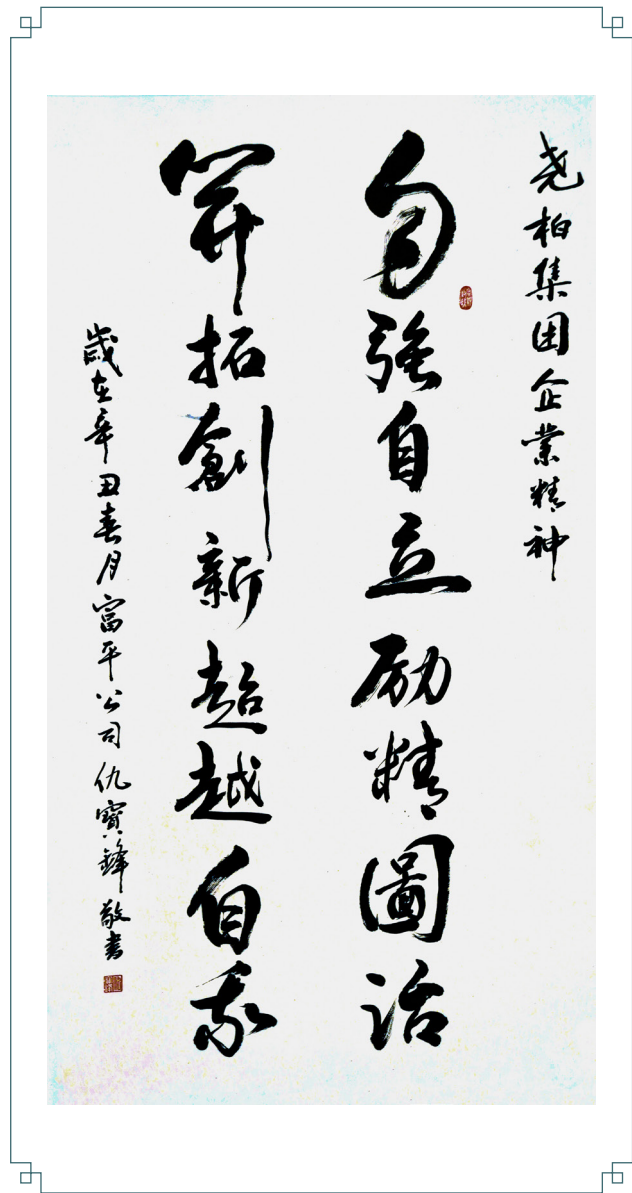 尧柏集团企业精神
自強自立励精圖治
開拓創新超越自我
歲在辛丑春月富平公司仇寶鋒敬书